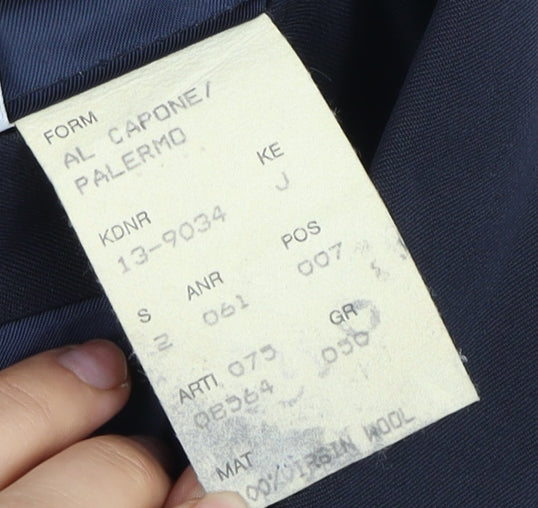 FORM
AL CAPONE/
PALERMO
KE
J
KDNR
13-9034
POS
007
S
2
ANR
061
GR
050
ARTI 075
08564
MAT
00%VIRGIN WOOL